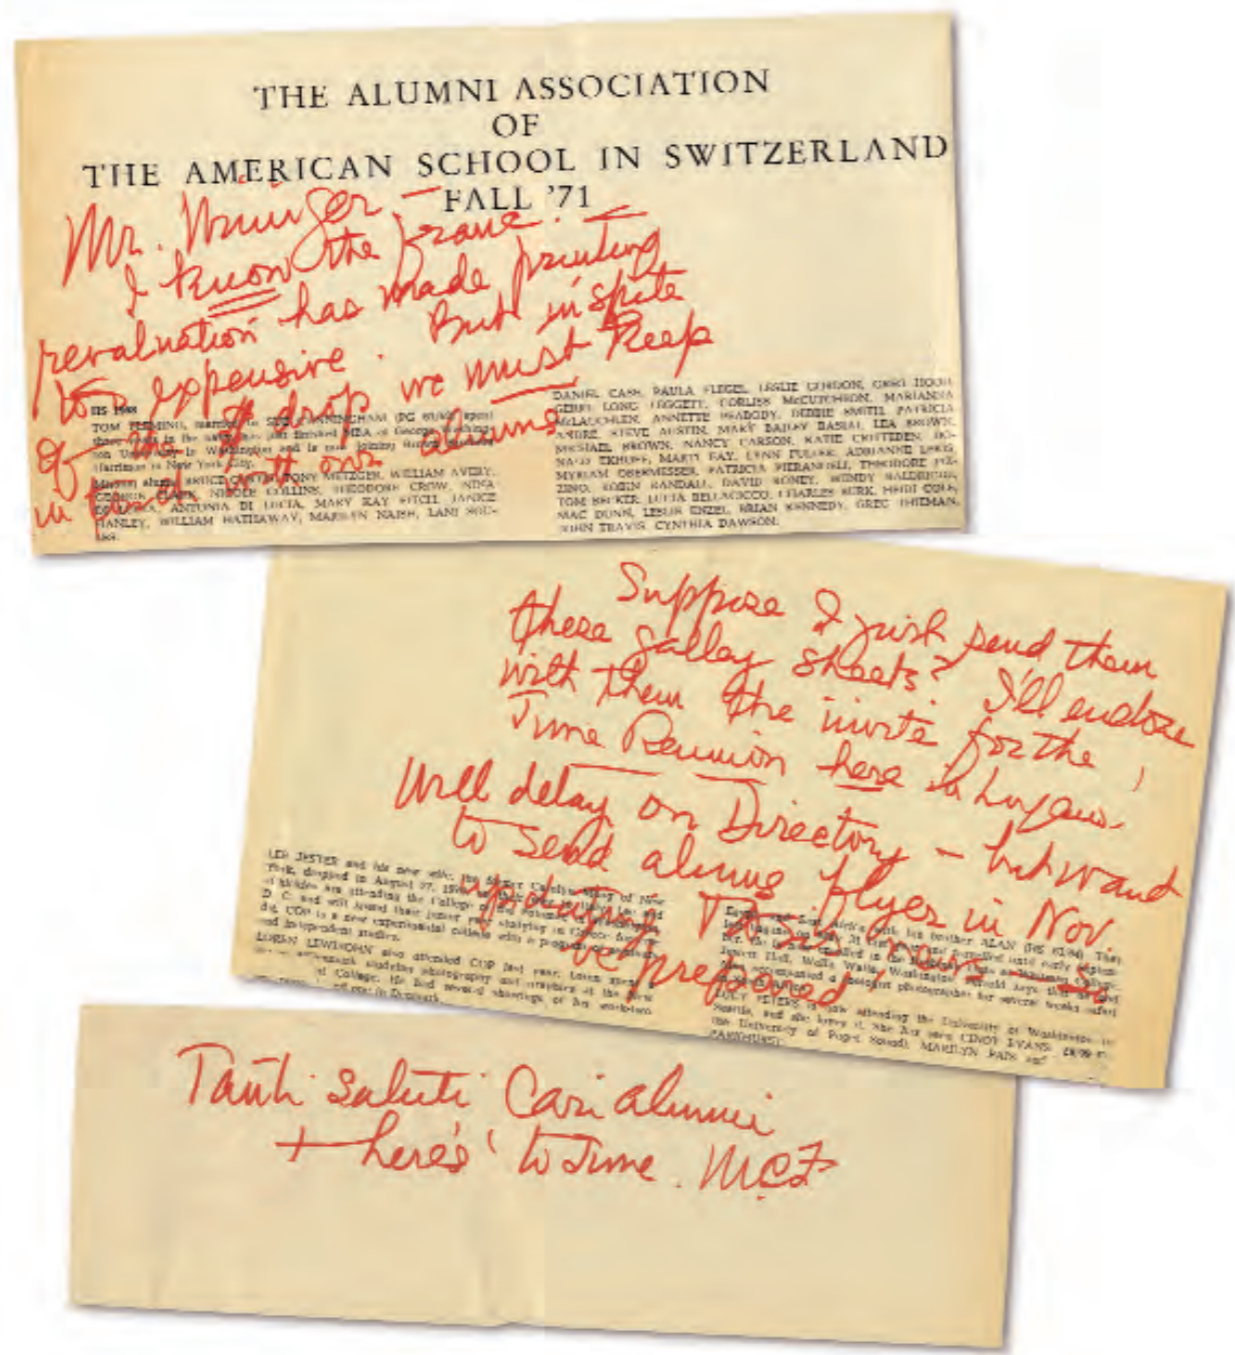 THE ALUMNI ASSOCIATION
OF
THE AMERICAN SCHOOL IN SWITZERLAND
FALL '71
Mr.
I know the franc
revaluation has made printing
too expensive. But in spite
of the $ drop we must keep
in touch with our alums
HS 1968
TOM FLEMING, married to
on University in Washington and is now joining Brown
Harriman in New York City.
BRUCE CARTER, TONY METZGER, WILLIAM AVERY,
GEORGIE CLARK, NICOLE COLLINS, THEODORE CROW, NINA
ANTONIA DI LUCIA, MARY KAY FITCH, JANICE
HANLEY, WILLIAM HATHAWAY, MARILYN NAISH, LANI
DANIEL CASH, PAULA FLEGEL, LESLIE GORDON, GRET
GERRI LONG LEGGETT, CORLISS McCUTCHEON, MARIANNA
McLAUCHLEN, ANNETTE PEABODY, DEBBIE SMITH, PATRICIA
ANDRE, STEVE AUSTIN, MARY BAILEY BASIAI, LEA BROWN,
MICHAEL BROWN, NANCY CARSON, KATIE CRITTEDEN, DO-
NALD EKHOFF, MARTI FAY, LYNN FULLER, ADRIANNE
MYRIAM OBERMESSER, PATRICIA PIERANGELI, THEODORE
ROBIN RANDALL, DAVID RONEY, WENDY
TOM BECKER, LUCIA BELLACICCO, CHARLES BURK, HEIDI COLE,
MAC DUNN, LESLIE ENZEL, BRIAN KENNEDY, GREG THIEMAN,
JOHN TRAVIS, CYNTHIA DAWSON.
Suppose I just send them
these galley sheets? I'll enclose
with them the invite for the
June Reunion here in Lugano.
Will delay on Directory – but want
to send alums flyer in Nov.
updating TASIS
we prepared
LEE JESTER and his new wife, the former Carolyn
York, dropped in August 27,
are attending the College of
D. C. and will spend their junior year studying in Greece
COP is a new experimental college with a program of
and independent studies.
LOREN LEWISOHN also attended COP last year. Loren spent a
studying photography and graphics at the New
College. He had several showings of his work
in Denmark.
his brother ALAN (HS
LUCY PETERS is now attending the University of Washington in
Seattle, and she loves it. She has seen CINDY EVANS,
the University of Puget Sound), MARILYN
PARKHURST.
Tanti saluti Cari alumni
+ here's to June. MCF